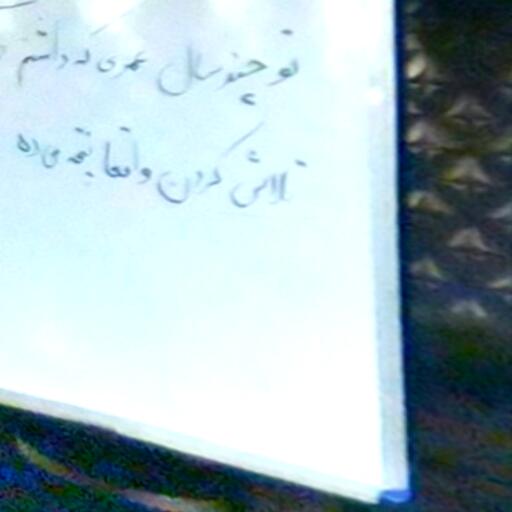 تو چند سال عمری که داشتم
تلاش کردن واقعا نتیجه می ده